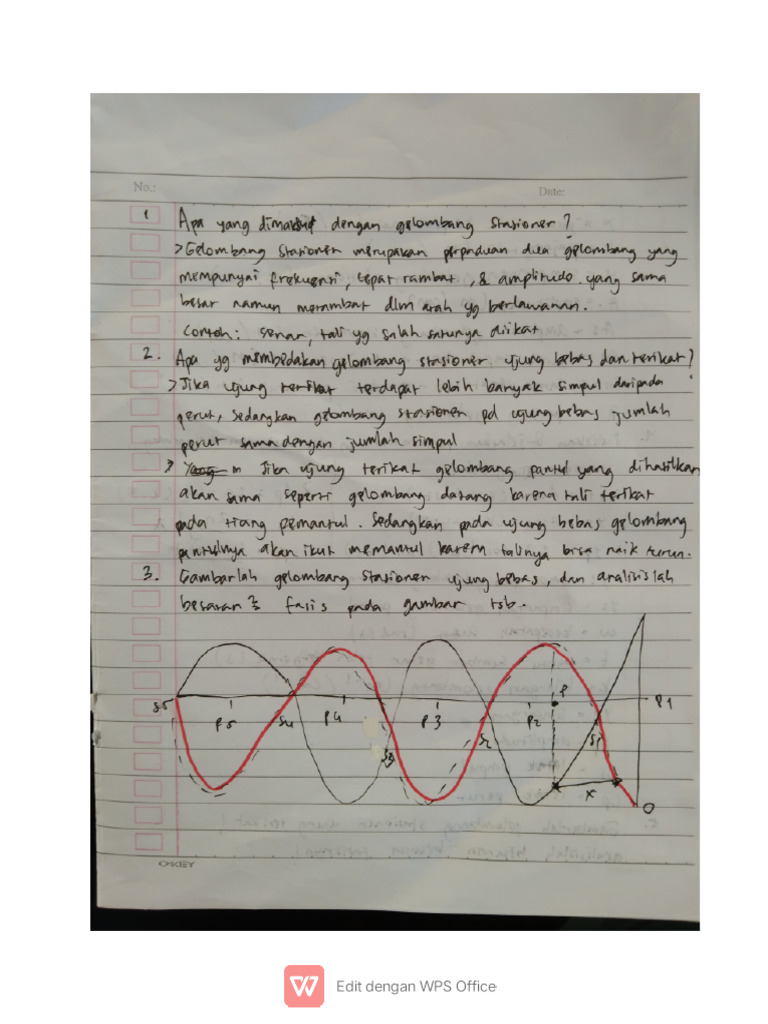 No.:
Date:
1 Apa yang dimaksud dengan gelombang stasioner?
> Gelombang stasioner merupakan perpaduan dua gelombang yang
mempunyai frekuensi, cepat rambat, & amplitudo yang sama
besar namun merambat dlm arah yg berlawanan.
Contoh: senar, tali yg salah satunya diikat
2. Apa yg membedakan gelombang stasioner ujung bebas dan terikat?
> Jika ujung terikat terdapat lebih banyak simpul daripada
perut, sedangkan gelombang stasioner pd ujung bebas jumlah
perut sama dengan jumlah simpul
> Jika ujung terikat gelombang pantul yang dihasilkan
akan sama seperti gelombang datang karena tali terikat
pada tiang pemantul. Sedangkan pada ujung bebas gelombang
pantulnya akan ikut memantul karem talinya bisa naik turun.
3. Gambarlah gelombang stasioner ujung bebas, dan analisislah
besaran2 fasis pada gambar tsb.
P
S5 P5 S4 P4 P3 P2 P1
S3 S2 S1
x
O
OKEY
Edit dengan WPS Office